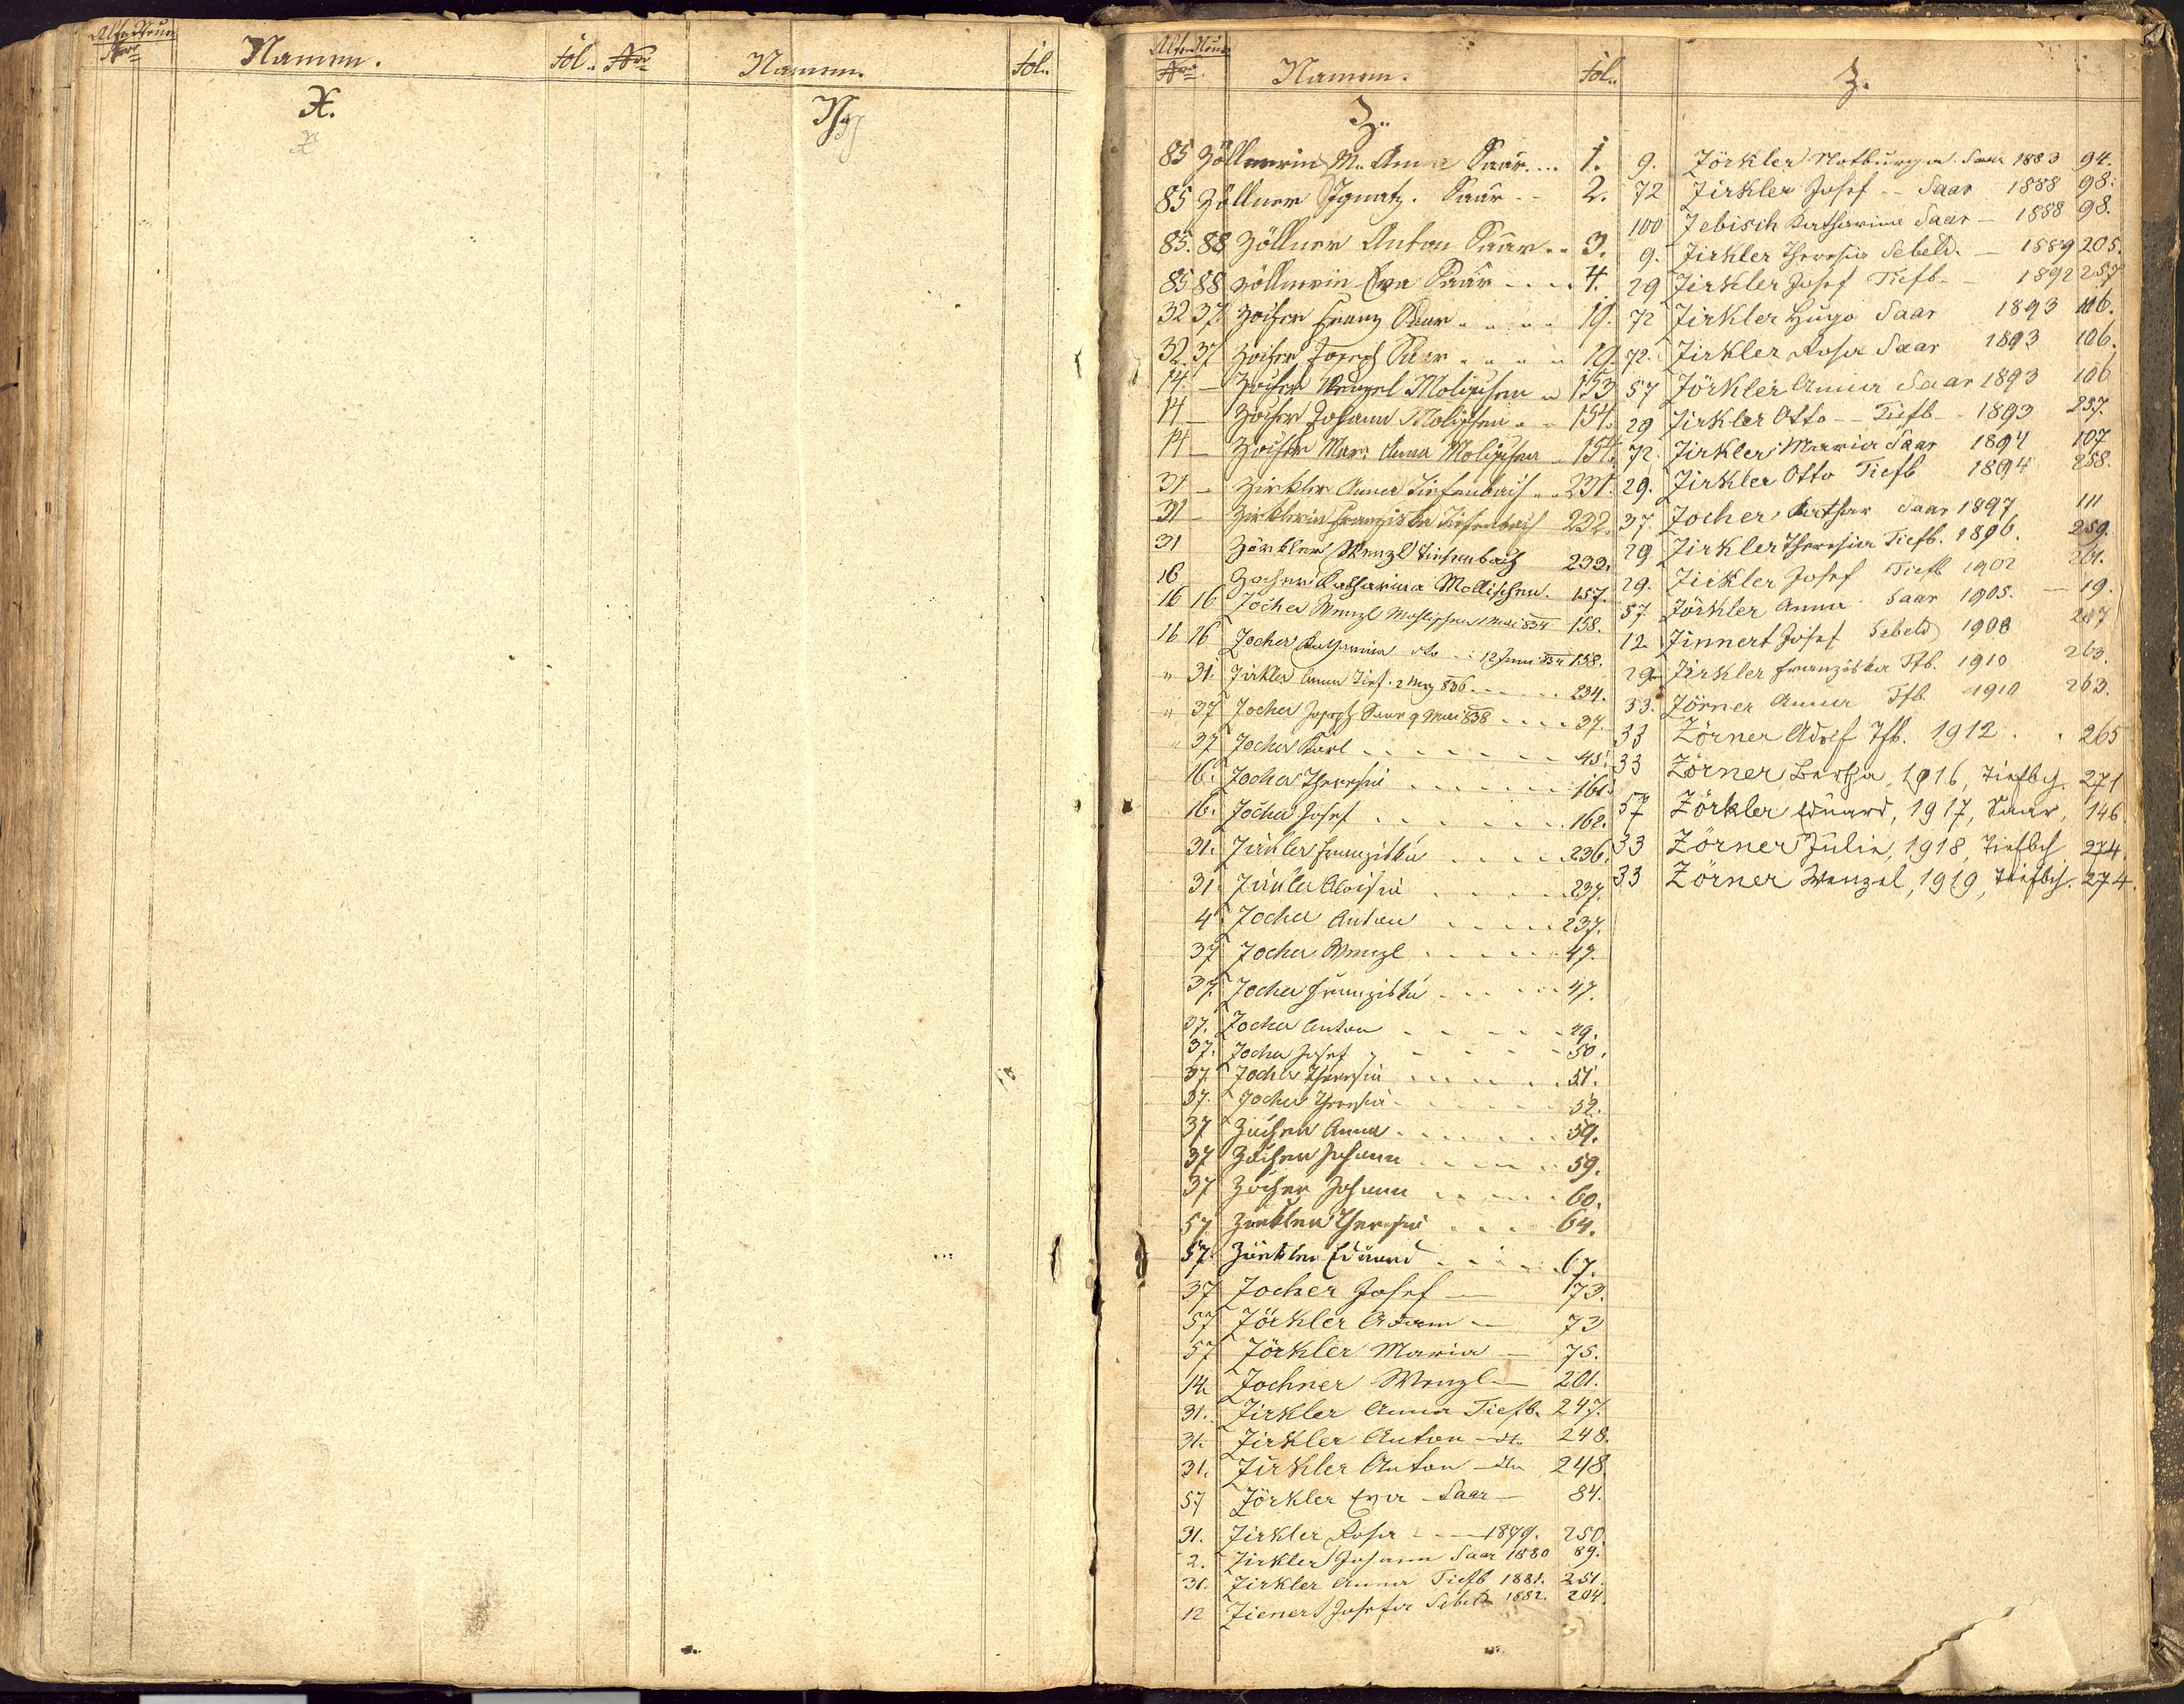 Alte Neue
Nro
Namen.
fol.
Nro
Namen.
fol.
X.
Y.
Alte Neue
Nro
Namen.
fol.
Z.
Z.
85 Zöllnerin M. Anna Saar ... 1.
85 Zöllner Ignatz. Saar - - 2.
85. 88 Zöllner Anton Saar .. 3.
85 88 Zöllnerin Eva Saar - - . 4.
32 37 Zocher Franz Saar . . . . 19.
32. 37 Zocher Joseph Saar . . . . 19.
14. — Zocher Wenzel Molischen . 153
14 — Zocher Johann Molischen . . 154.
14 — Zocher Mar. Anna Molischen - 154.
31 — Zirkler Anna Tiefenbach . . 231.
31 — Zirklerin Franziska Tiefenbach 232.
31 Zörkler Wenzl Tiefenbach 233.
16 Zocher Katharina Mollischen. 157.
16 16 Zocher Wenzl Mollischen 1 Mai 834 158.
16 16 Zocher Katharina dto - : 12 Juni 834 158.
" 31. Zirkler Anna Tief. 2 Mrz 836 - - - . . 234.
" 37 Zocher Joseph Saar 9 Mai 838 . . . . 37.
" 37 Zocher Karl - - - - - - - 45.
16. Zocher Theresia . . . . . . . 161.
16. Zocher Josef . . . . . . . 162.
31. Zirkler Franziska . . . . 236.
31. Zirkler Aloisia . . . . . 237.
4 Zocher Anton . . . . . 237.
37 Zocher Wenzl . . . . . . 47.
37. Zocher Franziska . . . . . 47.
37. Zocher Anton - - - - - 49.
37. Zocher Josef - - - - - 50.
37. Zocher Theresia . . . . . . 51.
37. Zocher Theresia - . . . . . 52.
37 Zocher Anna . . . . . . 59.
37 Zocher Johann . . . . . 59.
37 Zocher Johann . . . . . 60.
57 Zirkler Theresia . . . . 64.
57. Zirkler Eduard . . . . . 67.
37 Zocher Josef — 73.
57 Zörkler Adam — 73
57 Zörkler Maria — 75.
14. Zochner Wenzl — 201.
31. Zirkler Anna Tiefb. 247.
31. Zirkler Anton — dto 248.
31. Zirkler Anton — dto 248
57 Zörkler Eva — Saar — 84.
31. Zirkler Rosa - - - 1879. 250
2. Zirkler Johann Saar 1880 89.
31. Zirkler Anna Tiefb 1881. 251.
12 Zienert Josefa Sebeld 1882. 204.
9. Zörkler Notburga Saar 1883 94.
72 Zirkler Josef - - Saar 1888 98.
100 Zebisch Katharina Saar — 1888 98.
9. Zirkler Theresia Sebeld. — 1889 205.
29 Zirkler Josef Tiefb. — 1892 257
72 Zirkler Hugo Saar 1893 106.
72. Zirkler Rosa Saar 1893 106.
57 Zörkler Anna Saar 1893 106
29 Zirkler Otto - - Tiefb - 1893 257.
72. Zirkler Maria Saar 1894 107
29. Zirkler Otto Tiefb 1894 258.
37. Zocher Kathar Saar 1897 111
29 Zirkler Theresia Tiefb. 1896. 259.
29. Zirkler Josef Tiefb 1902 261.
57 Zörkler Anna Saar 1905. — 19.
12 Zinnert Josef Sebeld 1908 207
29. Zirkler Franziska Tfb. 1910 263.
33. Zörner Anna Tfb. 1910 263.
33 Zörner Adolf Tfb. 1912 . . 265
33 Zörner Bertha, 1916, Tiefbch. 271
57 Zörkler Eduard, 1917, Saar, 146.
33 Zörner Julie, 1918, Tiefbch 274.
33 Zörner Wenzel, 1919, Tiefbch. 274.